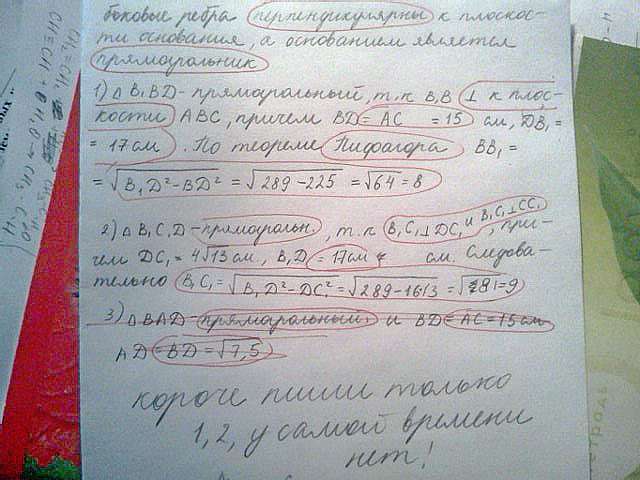 боковые ребра перпендикулярны к плоскос-
ти основания, а основанием является
прямоугольник
1) △ B₁BD - прямоугольный, т.к B₁B ⊥ к плос-
кости ABC, причем BD = AC = 15 см, DB₁ =
= 17 см. По теореме Пифагора BB₁ =
= √B₁D² - BD² = √289 - 225 = √64 = 8
2) △ B₁C₁D - прямоугольн., т.к B₁C₁ ⊥ DC₁ и B₁C₁ ⊥ CC₁, при-
чем DC₁ = 4√13 см, B₁D = 17 см см. Следова-
тельно B₁C₁ = √B₁D² - DC₁² = √289 - 16·13 = √81 = 9
3) △ BAD - прямоугольный, и BD = AC = 15 см
AD = BD = √7,5
короче пиши только
1, 2, у самой времени
нет!
CH₂ = CH₂